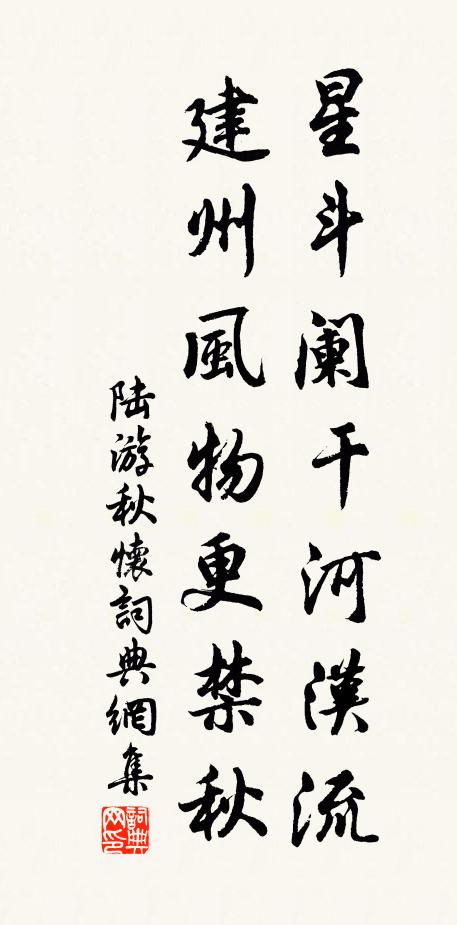 星斗阑干河漢流
建州風物更禁秋
陆游秋懷詞典網集
詞典网印